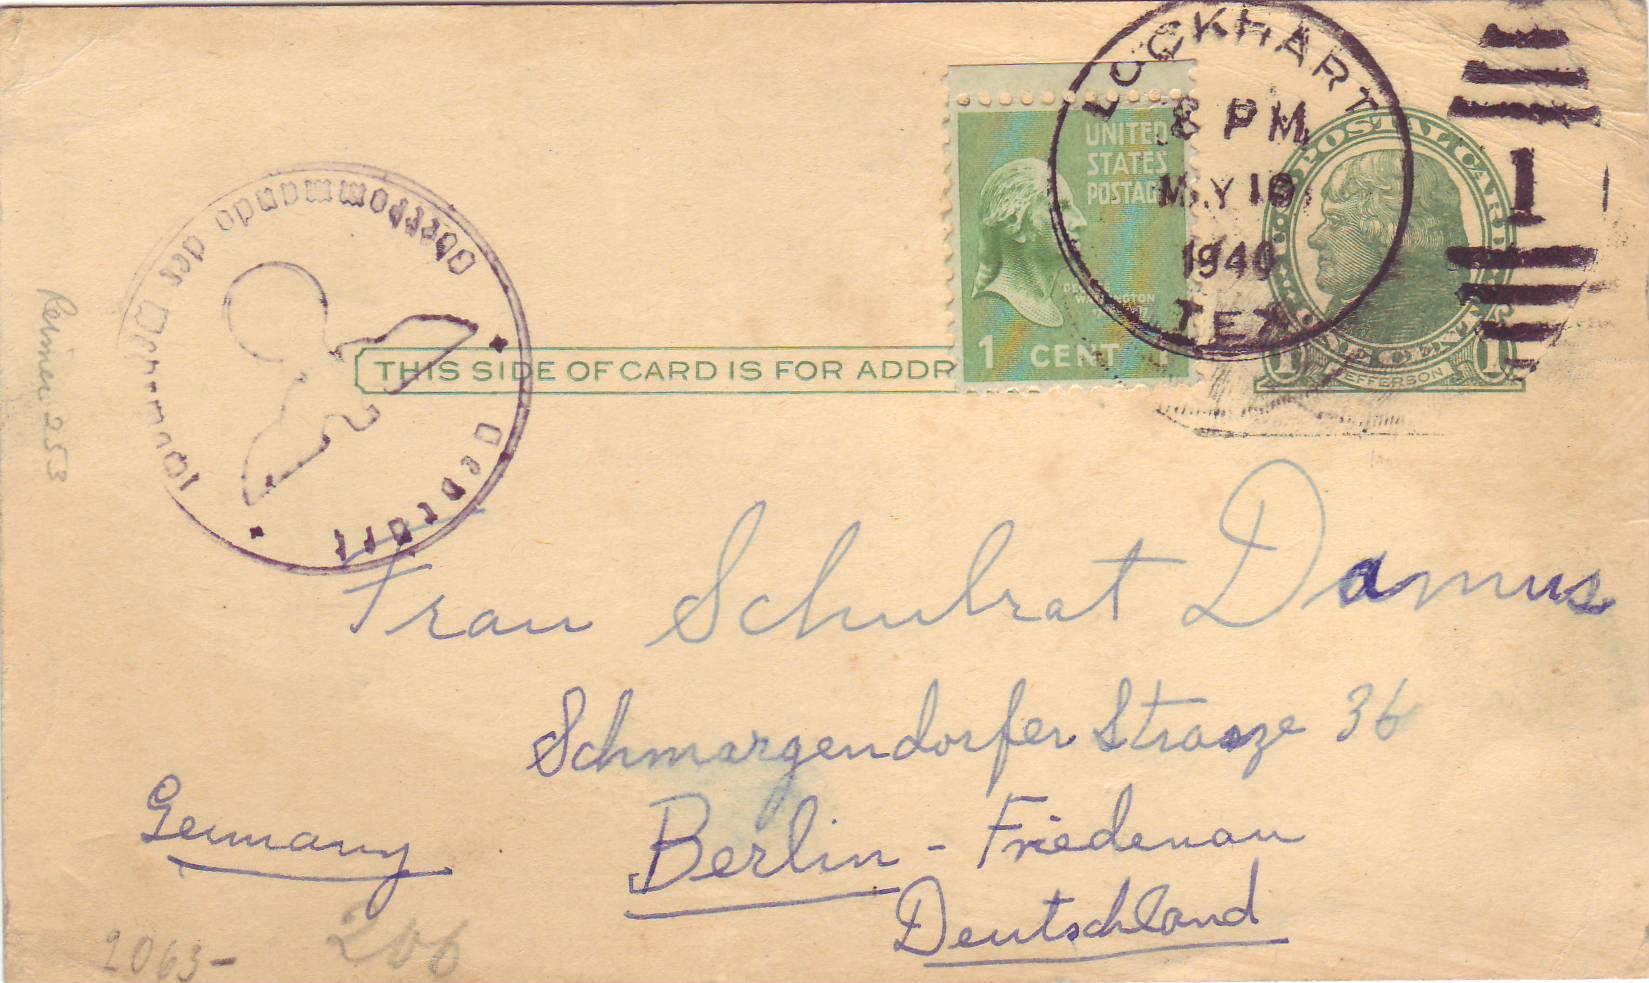 LOCKHART
8 PM
MAY 16
1940
TEX.
1
UNITED
STATES
POSTAGE
GEORGE
WASHINGTON
1 CENT
U.S. POSTAL CARD
ONE CENT
1 JEFFERSON 1
THIS SIDE OF CARD IS FOR ADDR
Oberkommando der Wehrmacht
Geprüft
Frau Schulrat Damus
Schmargendorfer Strasze 36
Berlin - Friedenau
Deutschland
Germany
2063-
206
253